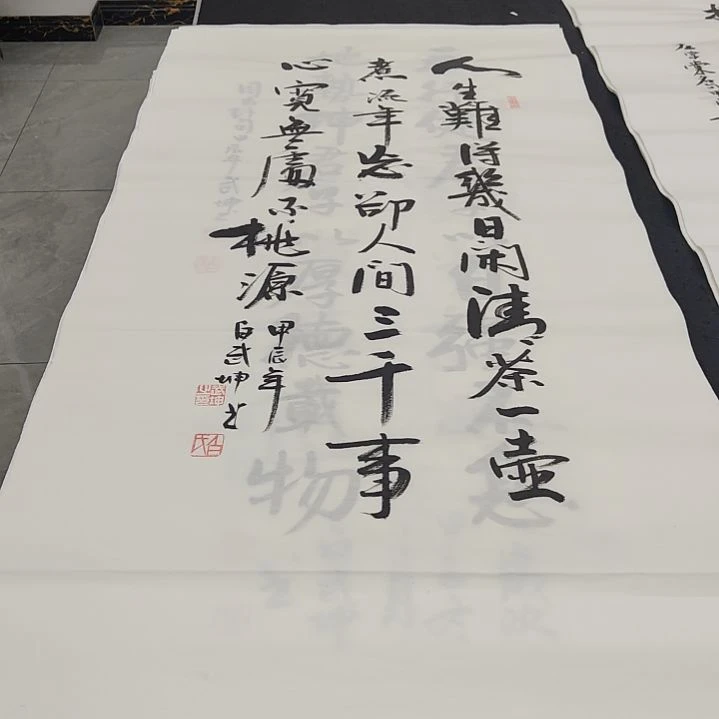 人生難得幾日閑清茶一壺
煮流年忘卻人间三千事
心寬無處不桃源
甲辰年
白武坤书